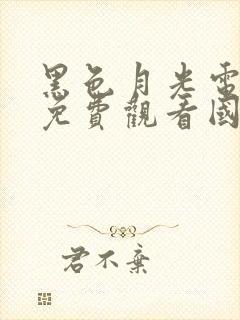 黑色月光電
免費觀看國
君不棄